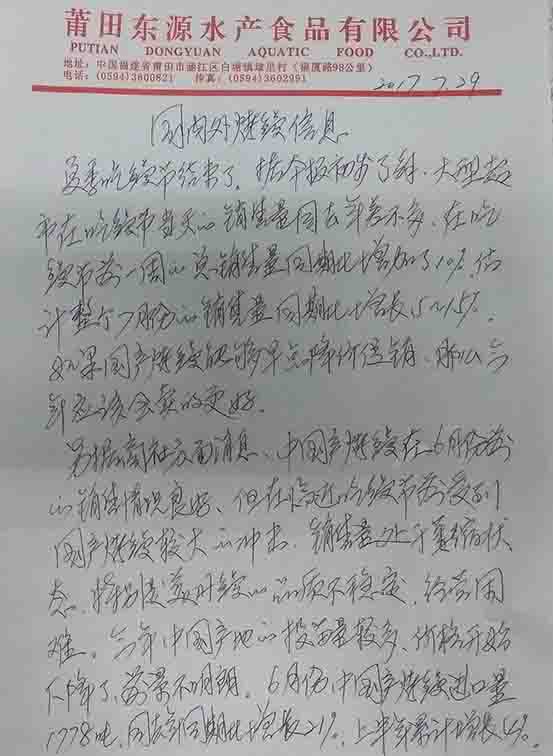 莆田东源水产食品有限公司
PUTIAN DONGYUAN AQUATIC FOOD CO.,LTD.
地址：中国福建省莆田市涵江区白塘镇埭里村（福厦路98公里）
电话：(0594)3600821 传真：(0594)3602991
2017.7.29
国内外烤鳗信息
夏季吃鳗节结束了。据介报初步了解，大型超
市在吃鳗节当天的销售量同去年差不多，在吃
鳗节前一周的总销售量同期比增加了10%估
计整个7月份的销售量同期比增长5～15%
如果国产烤鳗能够早点降价促销，那么今
年应该会卖的更好。
另据商社方面消息、中国产烤鳗在6月份前
的销售情况良好、但在临近吃鳗节前受到
国产烤鳗较大的冲击，销售量处于萎缩状
态，特别是美洲鳗的品质不稳定，经营困
难。今年中国产地的投苗量较多、价格开始
下降了，前景不明朗。6月份中国产烤鳗进口量
1778吨，同去年同期比增长21%，上半年累计增长